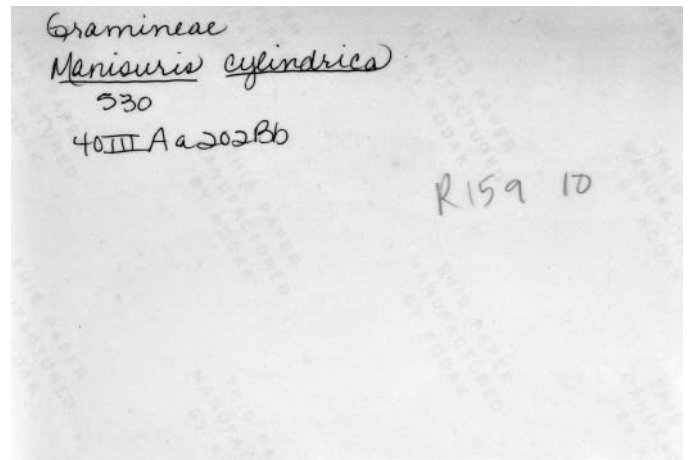 Gramineae
Manisuris cylindrica
530
40III Aa202Bb
R159 10
THIS PAPER
MANUFACTURED
BY KODAK